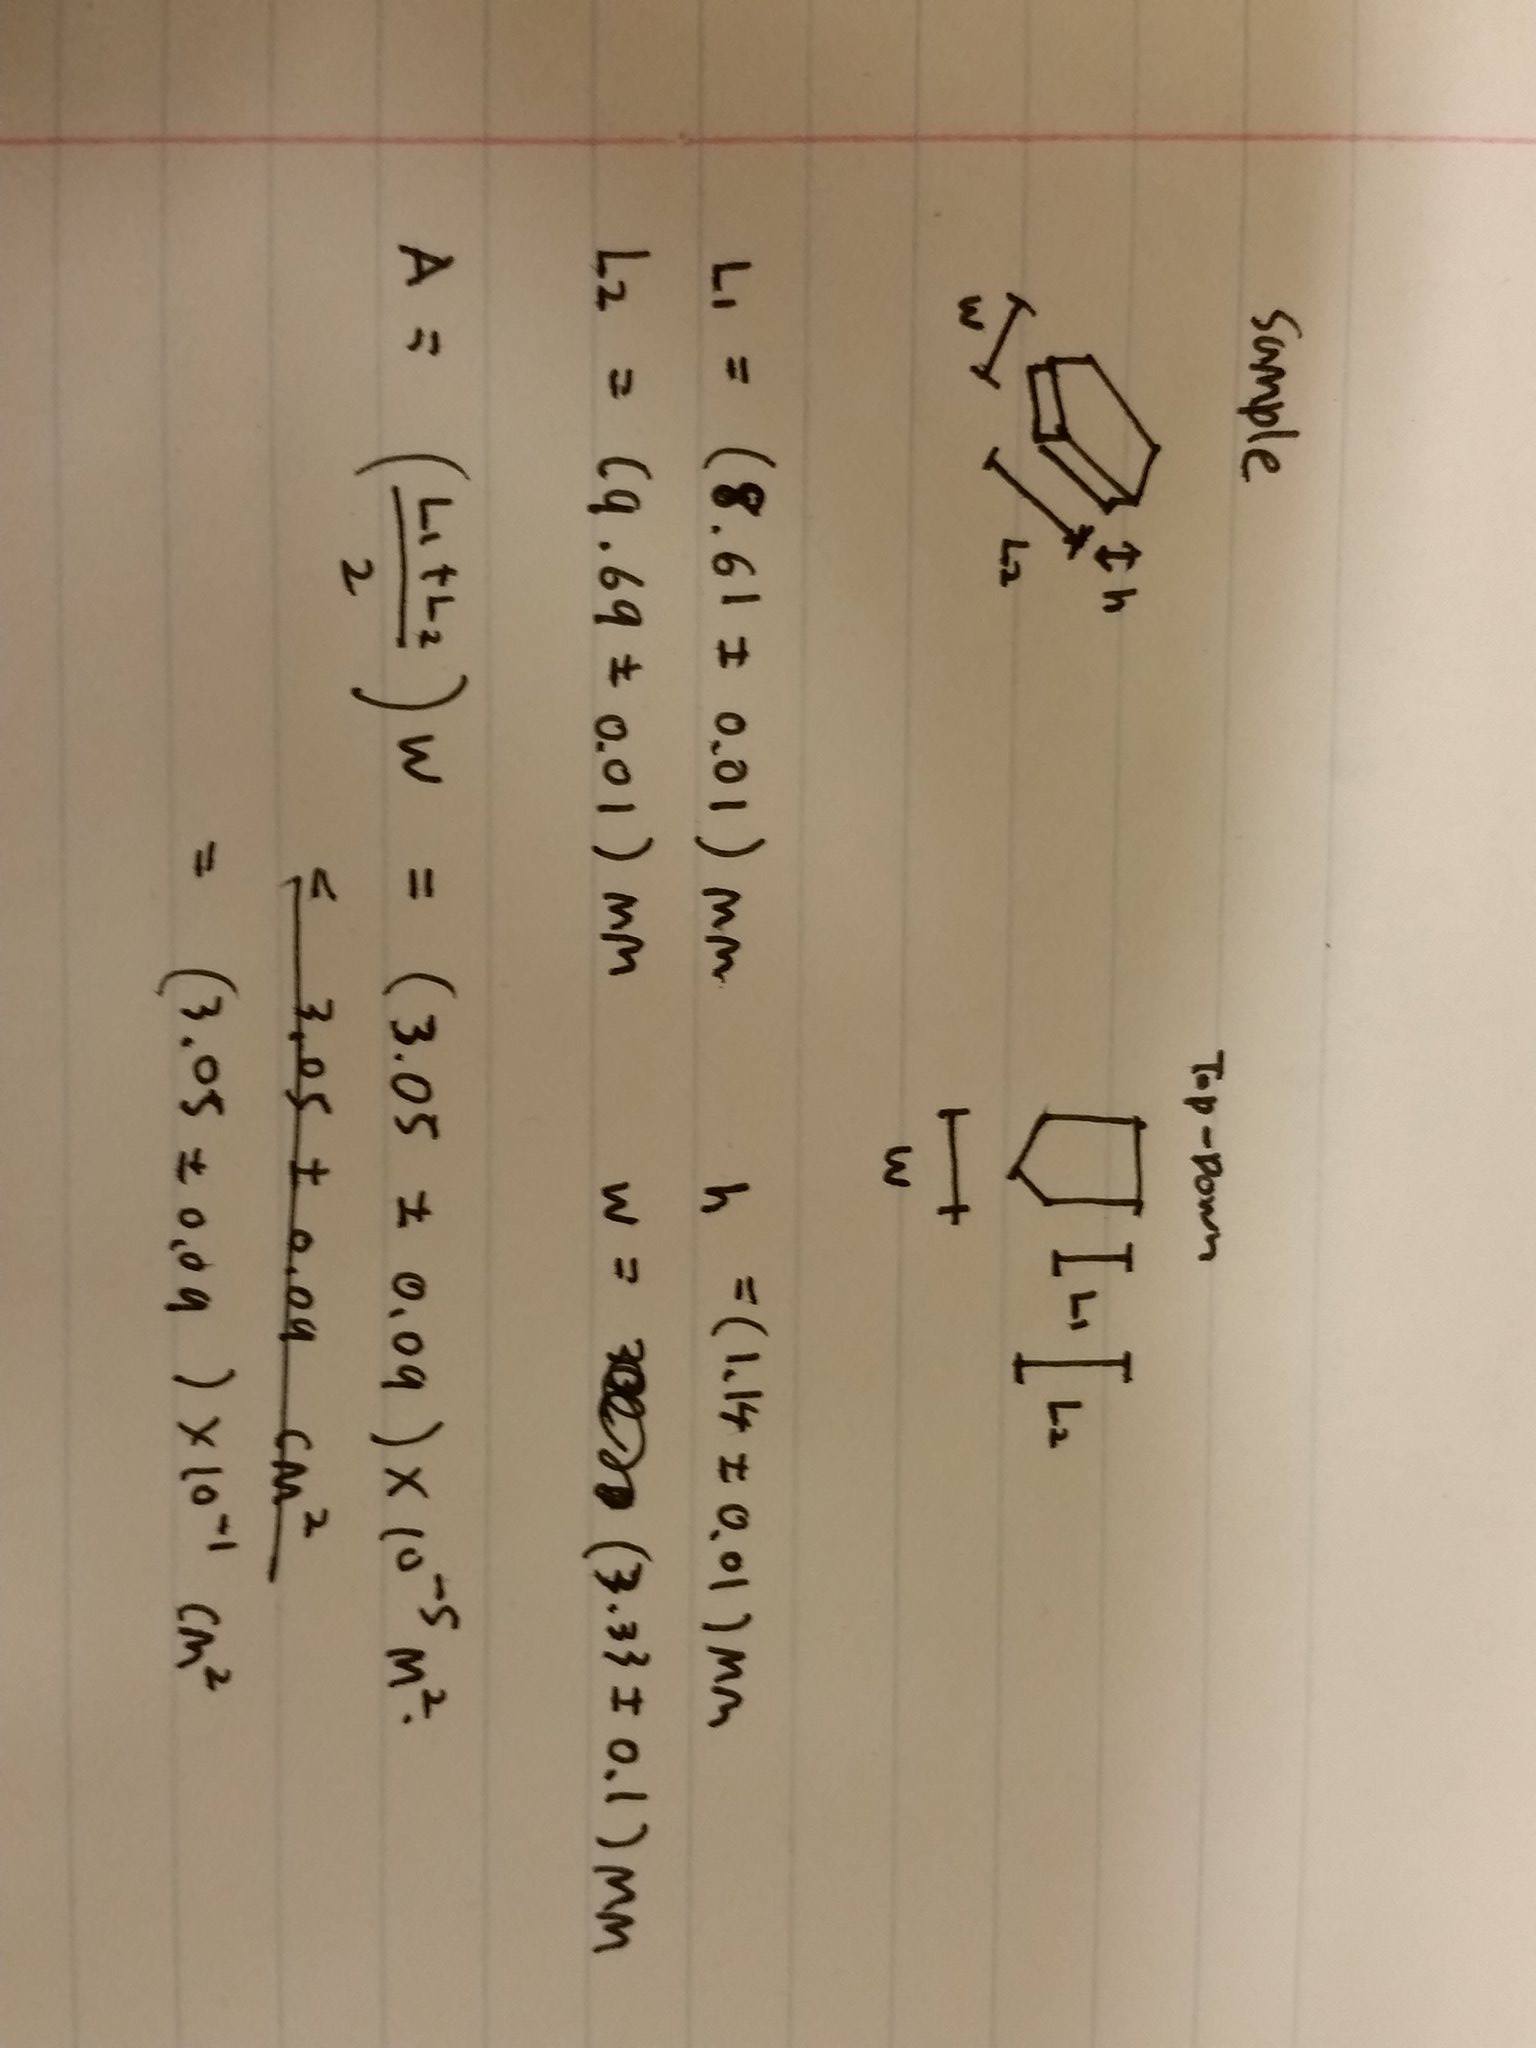 Sample
Top-Down
h
L1
L2
L2
w
w
L1 = (8.61 ± 0.01) mm
h = (1.14 ± 0.01) mm
L2 = (9.69 ± 0.01) mm
w = (3.33 ± 0.1) mm
A = ((L1+L2)/2) w = (3.05 ± 0.09) × 10⁻⁵ m².
= 3.05 ± 0.09 cm²
= (3.05 ± 0.09) × 10⁻¹ cm²